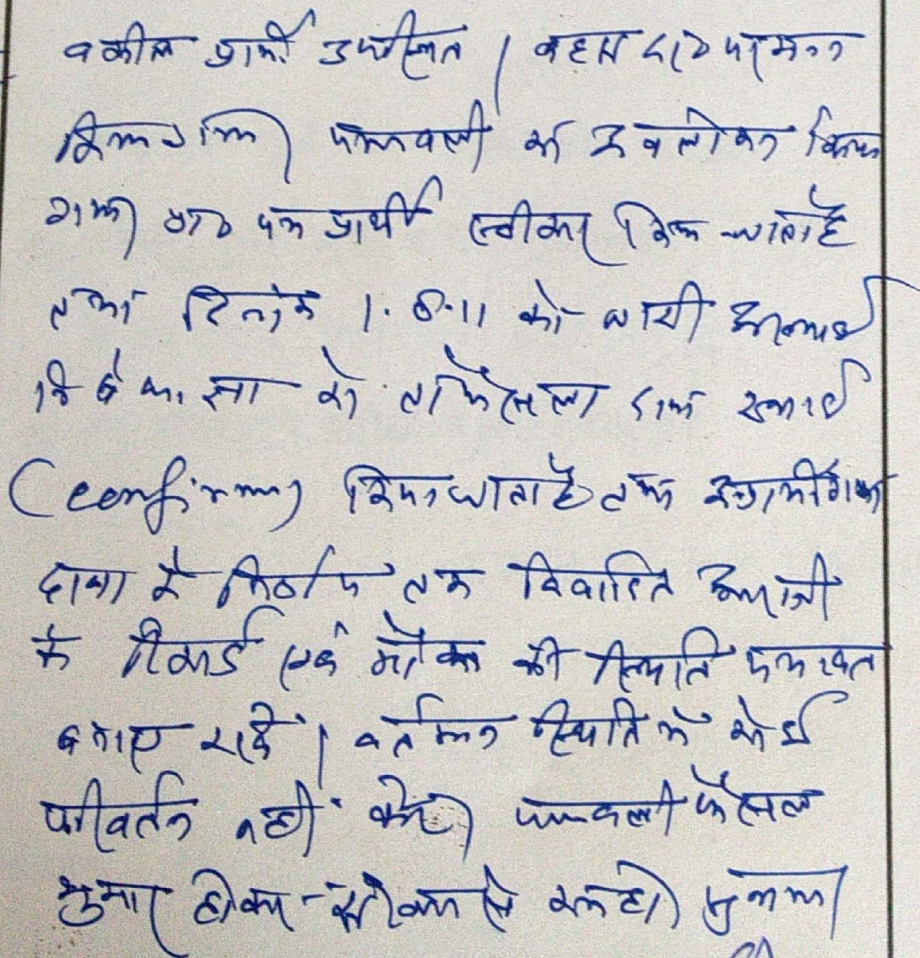 वकील प्रार्थी उपस्थित । बहस प्रा० पत्र सुनी
पत्रावली का अवलोकन किया
गया प्रा० पत्र प्रार्थी स्वीकार किया जाता है
तथा दिनांक 1.6.11 को जारी अस्थाई
निषेधाज्ञा को ताफैसला दावा स्थाई
(confirm) किया जाता है तथा
दावा के निर्णय तक विवादित आराजी
के रिकार्ड एवं मौका की स्थिति यथावत
बनाए रखें । वर्तमान स्थिति में कोई
परिवर्तन नहीं करें । पत्रावली फैसल
शुमार होकर नंबर से कम हो । सुनाया